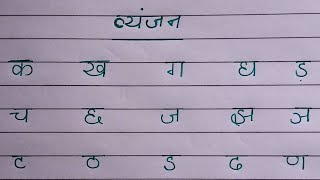 व्यंजन
क ख ग घ ड़
च छ ज झ ञ
ट ठ ड ढ ण